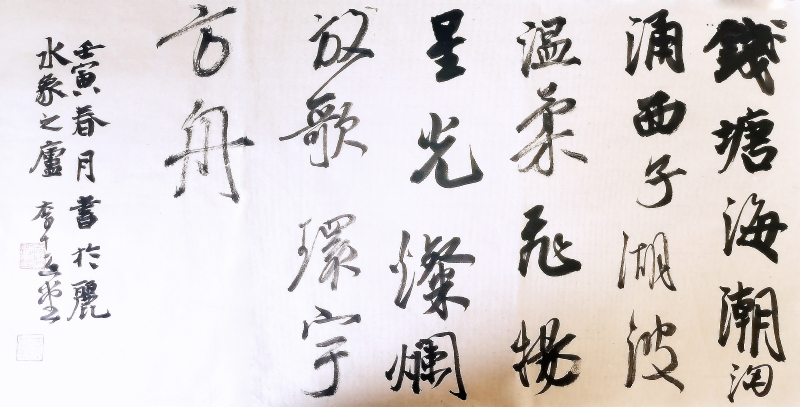 錢塘海潮洶
涌西子湖波
温柔飛揚
星光燦爛
放歌環宇
方舟
壬寅春月書於麗
水象之廬 李